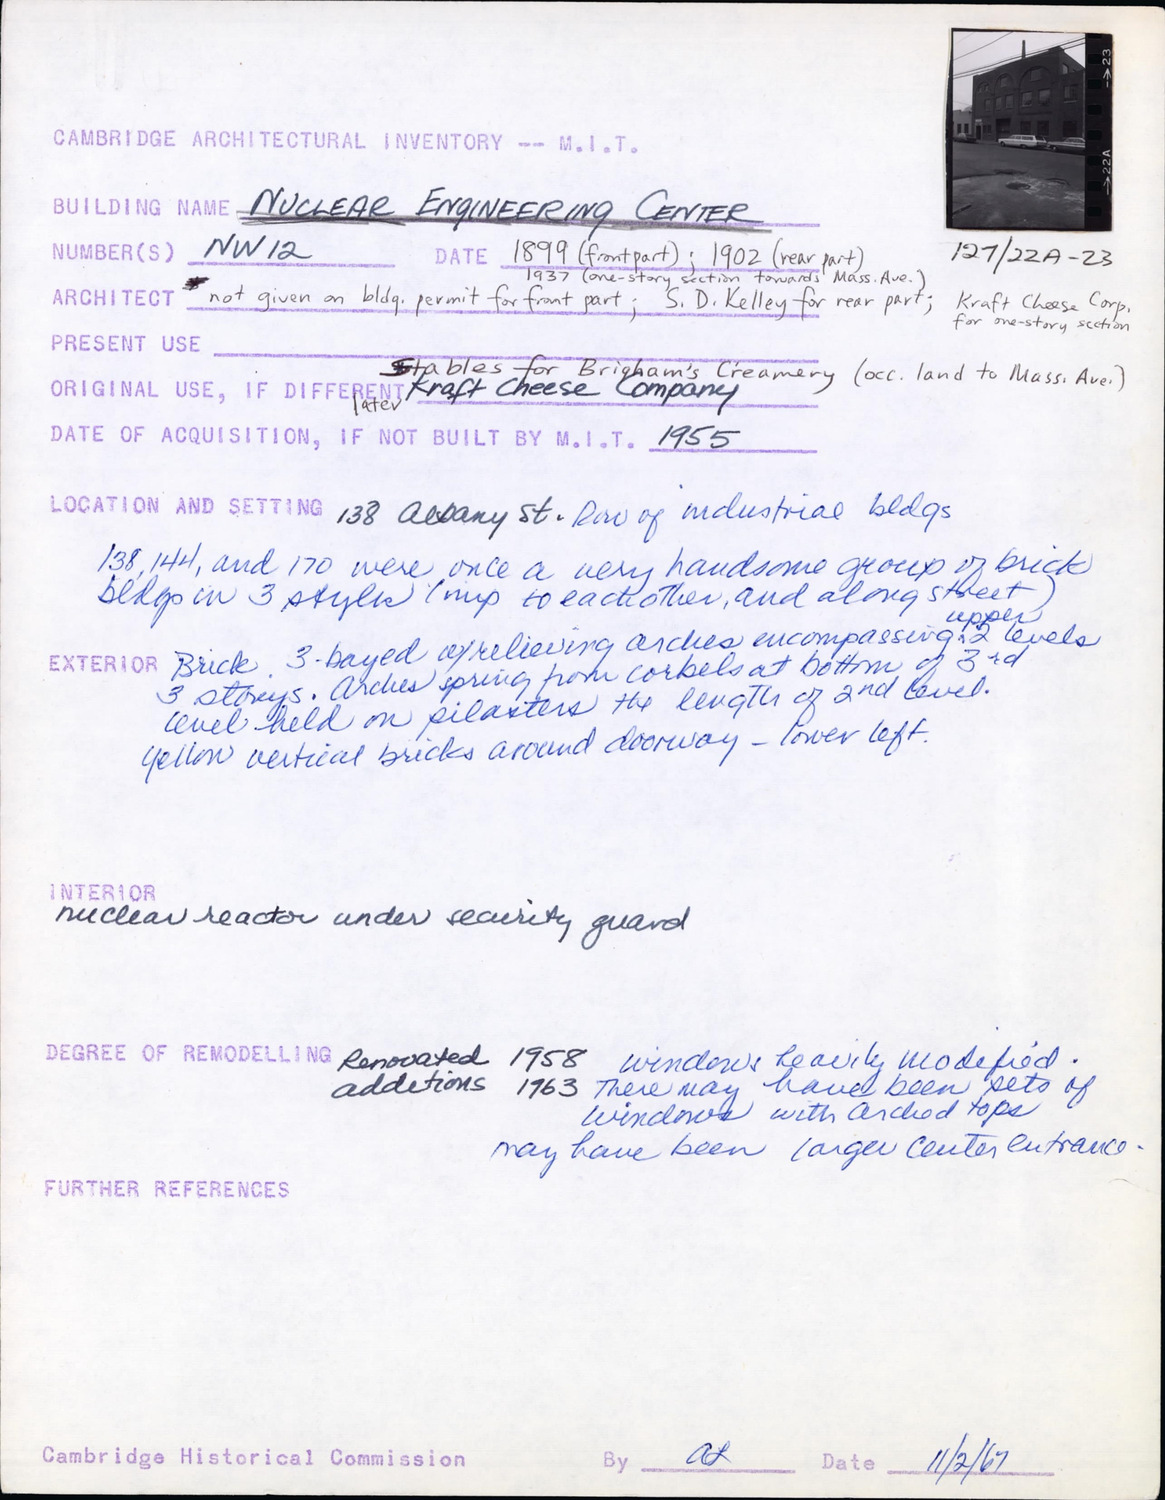 →23
→22A
CAMBRIDGE ARCHITECTURAL INVENTORY -- M.I.T.
BUILDING NAME NUCLEAR ENGINEERING CENTER
NUMBER(S) NW12 DATE 1899 (front part) ; 1902 (rear part)
127/22A-23
1937 (one-story section towards Mass. Ave.)
ARCHITECT not given on bldg. permit for front part ; S. D. Kelley for rear part; Kraft Cheese Corp.
for one-story section
PRESENT USE
Stables for Brigham's Creamery (occ. land to Mass. Ave.)
ORIGINAL USE, IF DIFFERENT Kraft Cheese Company
later
DATE OF ACQUISITION, IF NOT BUILT BY M.I.T. 1955
LOCATION AND SETTING 138 Albany St. Row of industrial bldgs
138, 144, and 170 were once a very handsome group of brick
bldgs in 3 styles ( to each other, and along street)
upper
EXTERIOR Brick. 3-bayed w/relieving arches encompassing 2 levels
3 storeys. Arches spring from corbels at bottom of 3rd
level held on pilasters the length of 2nd level.
Yellow vertical bricks around doorway – lower left.
INTERIOR
nuclear reactor under security guard
DEGREE OF REMODELLING Renovated 1958 windows heavily modified.
additions 1963 There may have been sets of
windows with arched tops
may have been larger center entrance.
FURTHER REFERENCES
Cambridge Historical Commission By Date 11/2/67